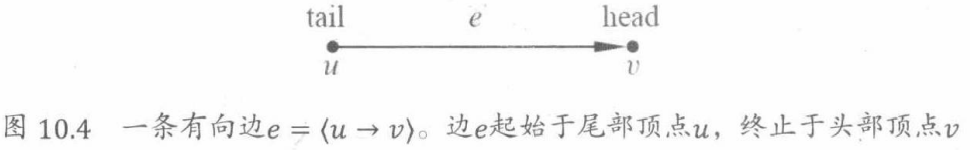 tail e head
u v
图 10.4 一条有向边e = ⟨u → v⟩。边e起始于尾部顶点u，终止于头部顶点v